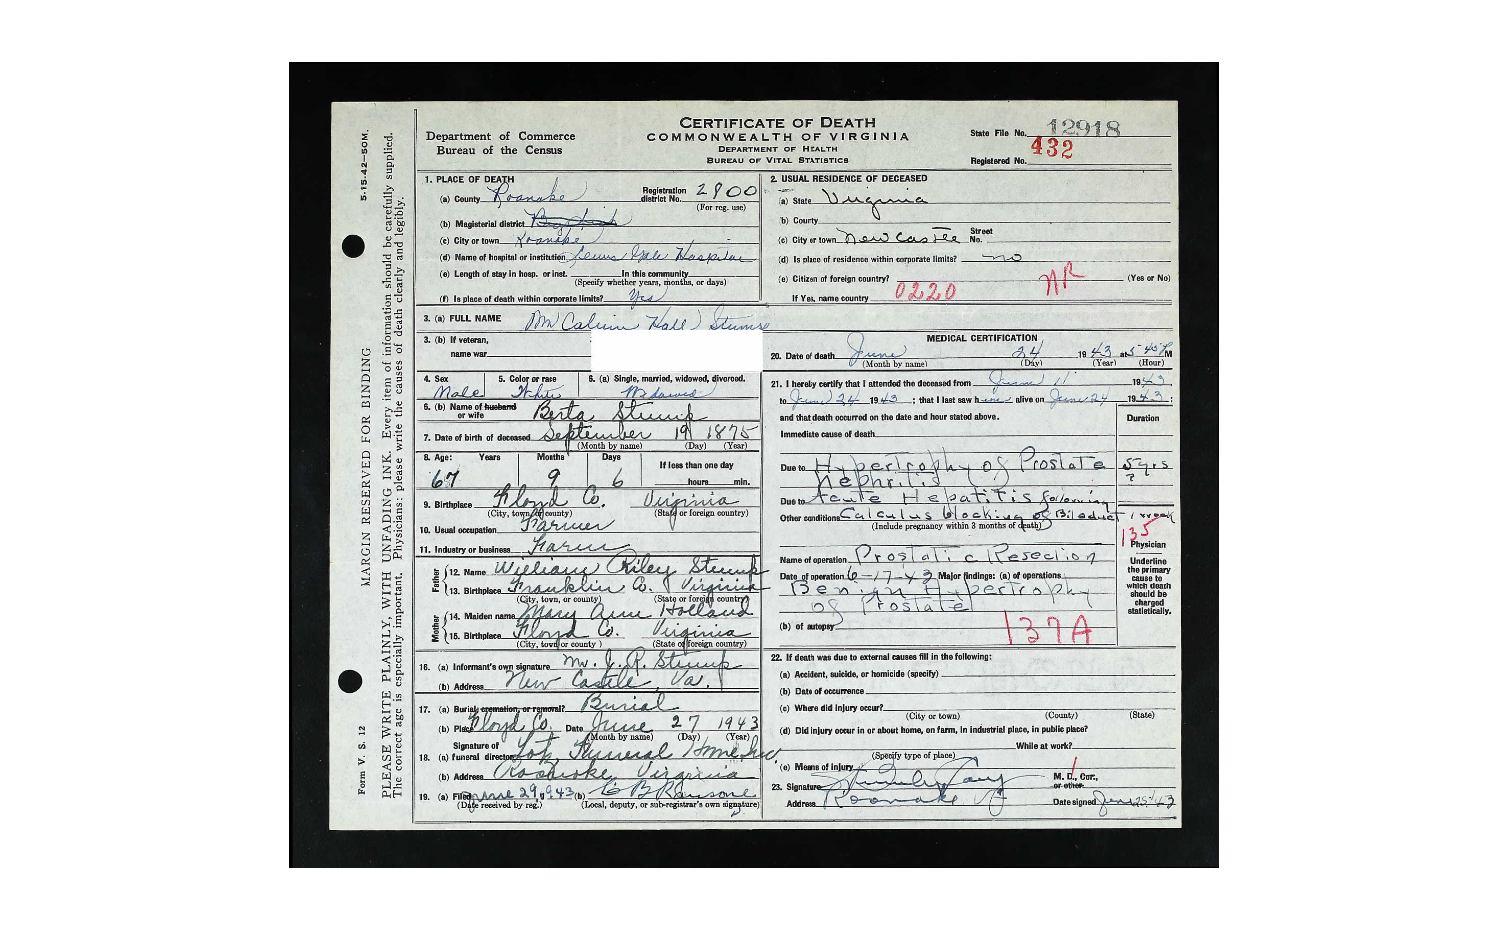 5-15-42-50M.
MARGIN RESERVED FOR BINDING
PLEASE WRITE PLAINLY, WITH UNFADING INK. Every item of information should be carefully supplied.
The correct age is especially important. Physicians: please write the causes of death clearly and legibly.
Form V. S. 12
Department of Commerce
Bureau of the Census
CERTIFICATE OF DEATH
COMMONWEALTH OF VIRGINIA
DEPARTMENT OF HEALTH
BUREAU OF VITAL STATISTICS
State File No. 12918
Registered No. 432
1. PLACE OF DEATH
(a) County Roanoke Registration district No. 2800 (For reg. use)
(b) Magisterial district
(c) City or town Roanoke
(d) Name of hospital or institution Lewis Gale Hospital
(e) Length of stay in hosp. or inst. In this community
(Specify whether years, months, or days)
(f) Is place of death within corporate limits? Yes
2. USUAL RESIDENCE OF DECEASED
(a) State Virginia
(b) County
(c) City or town New Castle Street No.
(d) Is place of residence within corporate limits? no
(e) Citizen of foreign country? NR (Yes or No)
If Yes, name country 0220
3. (a) FULL NAME Mr Calvin Hall Stump
3. (b) If veteran,
name war
4. Sex 5. Color or race 6. (a) Single, married, widowed, divorced.
Male White Widowed
6. (b) Name of husband or wife Berta Stump
7. Date of birth of deceased September 19 1875
(Month by name) (Day) (Year)
8. Age: Years Months Days If less than one day
67 9 6 hours min.
9. Birthplace Floyd Co. Virginia
(City, town, or county) (State or foreign country)
10. Usual occupation Farmer
11. Industry or business Farm
Father
12. Name William Riley Stump
13. Birthplace Franklin Co. Virginia
(City, town, or county) (State or foreign country)
Mother
14. Maiden name Mary Ann Holland
15. Birthplace Floyd Co. Virginia
(City, town or county) (State or foreign country)
16. (a) Informant's own signature Mr. J. R. Stump
(b) Address New Castle, Va.
17. (a) Burial, cremation, or removal? Burial
(b) Place Floyd Co. Date June 27 1943
(Month by name) (Day) (Year)
18. (a) Signature of funeral director Lotz Funeral Home Inc.
(b) Address Roanoke, Virginia
19. (a) Filed June 29, 1943 (b) C B Ransone
(Date received by reg.) (Local, deputy, or sub-registrar's own signature)
MEDICAL CERTIFICATION
20. Date of death June 24 1943 at 5:45 P M
(Month by name) (Day) (Year) (Hour)
21. I hereby certify that I attended the deceased from June 11 1943
to June 24 1943; that I last saw him alive on June 24 1943;
and that death occurred on the date and hour stated above.
Duration
Immediate cause of death
Due to Hypertrophy of Prostate 5 yrs
Nephritis ?
Due to Acute Hepatitis following
Other conditions Calculus blocking of Bileduct 1 week
(Include pregnancy within 3 months of death)
135
Physician
Underline the primary cause to which death should be charged statistically.
Name of operation Prostatic Resection
Date of operation 6-17-43 Major findings: (a) of operations
Benign Hypertrophy
of Prostate
(b) of autopsy
137A
22. If death was due to external causes fill in the following:
(a) Accident, suicide, or homicide (specify)
(b) Date of occurrence
(c) Where did injury occur?
(City or town) (County) (State)
(d) Did injury occur in or about home, on farm, in industrial place, in public place?
While at work?
(Specify type of place)
(e) Means of injury
23. Signature M. D., Cor., or other.
Address Roanoke Va Date signed June 25 '43